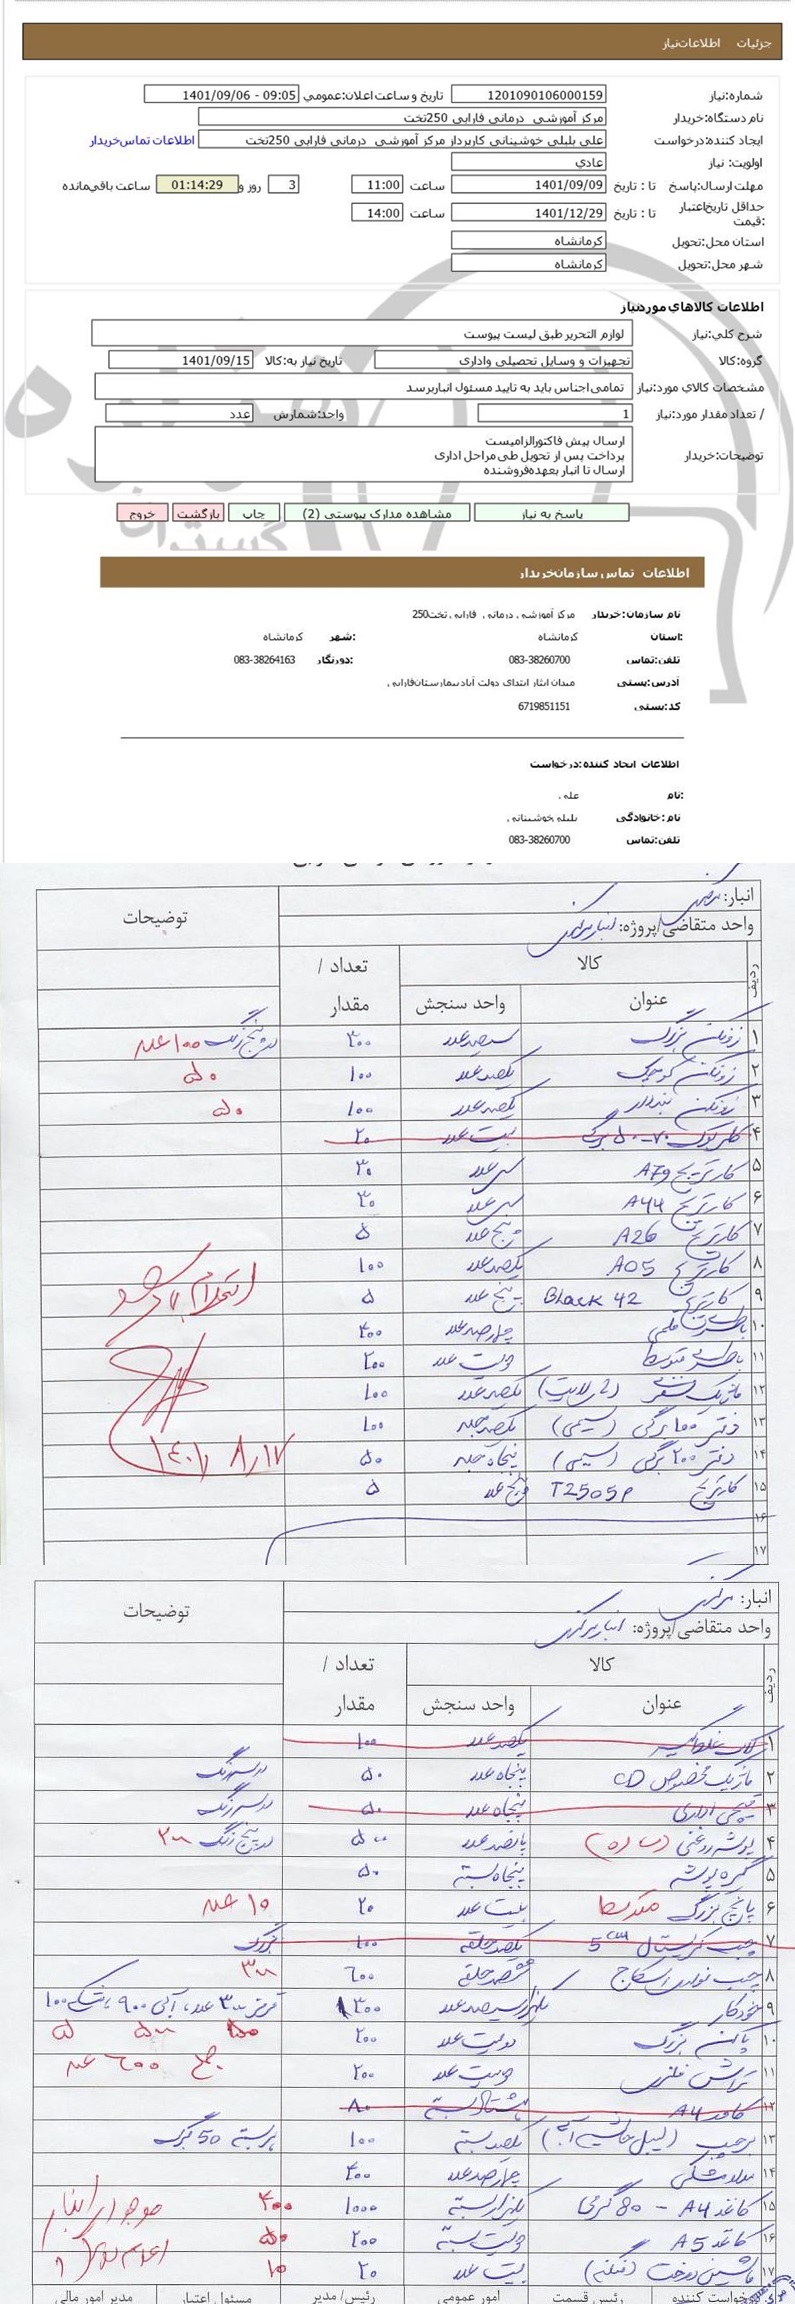 جزئیات اطلاعات نیاز
شماره نیاز: 1201090106000159 تاریخ و ساعت اعلان عمومی: 1401/09/06 - 09:05
نام دستگاه خریدار: مرکز آموزشی درمانی فارابی 250تخت
ایجاد کننده درخواست: علی بلبلی خوشینانی کاربردار مرکز آموزشی درمانی فارابی 250تخت اطلاعات تماس خریدار
اولویت نیاز: عادی
مهلت ارسال پاسخ تا : تاریخ 1401/09/09 ساعت 11:00 3 روز و 01:14:29 ساعت باقی‌مانده
حداقل تاریخ اعتبار قیمت: تا : تاریخ 1401/12/29 ساعت 14:00
استان محل تحویل: کرمانشاه
شهر محل تحویل: کرمانشاه
اطلاعات کالاهای مورد نیاز
شرح کلی نیاز: لوازم التحریر طبق لیست پیوست
گروه کالا: تجهیزات و وسایل تحصیلی و اداری تاریخ نیاز به کالا: 1401/09/15
مشخصات کالای مورد نیاز: تمامی اجناس باید به تایید مسئول انبار برسد
/ تعداد مقدار مورد نیاز: 1 واحد شمارش: عدد
توضیحات خریدار: ارسال پیش فاکتور الزامیست
پرداخت پس از تحویل طی مراحل اداری
ارسال تا انبار بعهده فروشنده
پاسخ به نیاز مشاهده مدارک پیوستی (2) چاپ بازگشت خروج
اطلاعات تماس سازمان خریدار
نام سازمان خریدار: مرکز آموزشی درمانی فارابی تخت250
استان: کرمانشاه شهر: کرمانشاه
تلفن تماس: 083-38260700 دورنگار: 083-38264163
آدرس پستی: میدان ایثار ابتدای دولت آباد بیمارستان فارابی
کد پستی: 6719851151
اطلاعات ایجاد کننده درخواست:
نام: علی
نام خانوادگی: بلبلی خوشینانی
تلفن تماس: 083-38260700
انبار: مرکزی
واحد متقاضی/پروژه: انبار مرکزی
توضیحات
ردیف کالا تعداد / مقدار
عنوان واحد سنجش
۱ زونکن بزرگ سیصد عدد ۳۰۰ در پنج رنگ ۱۰۰ عدد
۲ زونکن کوچک یکصد عدد ۱۰۰ ۵۰
۳ زونکن بنددار یکصد عدد ۱۰۰ ۵۰
۴ کلربوک بیست عدد ۲۰
۵ کارتریج A79 سی عدد ۳۰
۶ کارتریج A44 سی عدد ۳۰
۷ کارتریج A26 پنج عدد ۵
۸ کارتریج A05 یکصد عدد ۱۰۰
۹ کارتریج Black 42 پنج عدد ۵
۱۰ باطری قلمی چهارصد عدد ۴۰۰
۱۱ باطری متوسط دویست عدد ۲۰۰
۱۲ ماژیک شبرنگ (های لایت) یکصد عدد ۱۰۰
۱۳ دفتر ۱۰۰ برگی (سیمی) یکصد جلد ۱۰۰
۱۴ دفتر ۲۰۰ برگی (سیمی) پنجاه جلد ۵۰
۱۵ کارتریج T2505P پنج عدد ۵
۱۶
۱۷
۱۴۰۱/۸/۱۷
انبار: مرکزی
واحد متقاضی/پروژه: انبار مرکزی
توضیحات
ردیف کالا تعداد / مقدار
عنوان واحد سنجش
۱ لاک غلطگیر یکصد عدد ۱۰۰
۲ ماژیک مخصوص CD پنجاه عدد ۵۰ در سه رنگ
۳ قیچی اداری پنجاه عدد ۵۰ در سه رنگ
۴ پوشه روغنی (ساده) پانصد عدد ۵۰۰ در پنج رنگ ۳۰۰
۵ گیره پوشه پنجاه بسته ۵۰
۶ پانچ بزرگ متوسط بیست عدد ۲۰ ۱۰ عدد
۷ چسب کریستال 5 cm یکصد حلقه ۱۰۰ بزرگ
۸ چسب نواری اسکاچ ششصد حلقه ۶۰۰ ۳۰۰
۹ خودکار یکهزار و سیصد عدد ۱۳۰۰ قرمز ۳۰۰ عدد، آبی ۹۰۰، مشکی ۱۰۰
۱۰ پاکن بزرگ دویست عدد ۲۰۰
۱۱ تراش فلزی دویست عدد ۲۰۰ جمع ۶۰۰ عدد
۱۲ کاغذ A4 هشتاد بسته ۸۰
۱۳ برچسب (لیبل حاشیه آبی) یکصد بسته ۱۰۰ هر بسته 50 برگ
۱۴ مداد مشکی چهارصد عدد ۴۰۰
۱۵ کاغذ A4 - ۸۰ گرمی یکهزار بسته ۱۰۰۰ ۴۰۰ موجودی انبار
۱۶ کاغذ A5 دویست بسته ۲۰۰ ۵۰
۱۷ ماشین دوخت (منگنه) بیست عدد ۲۰ ۱۰
درخواست کننده رئیس قسمت امور عمومی رئیس/ مدیر مسئول اعتبار مدیر امور مالی